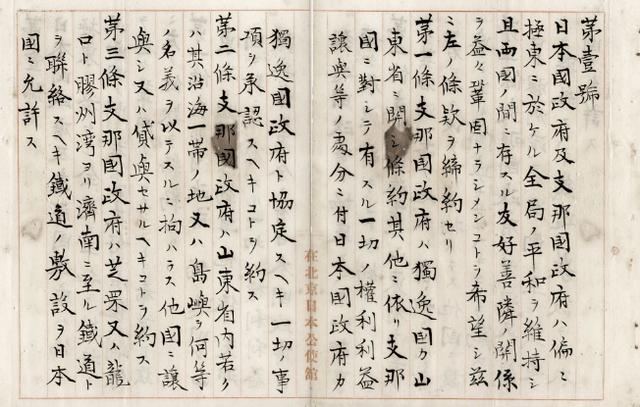 第壹號
日本國政府及支那國政府ハ偏ニ
極東ニ於ケル全局ノ平和ヲ維持シ
且両國ノ間ニ存スル友好善隣ノ關係
ヲ益々鞏固ナラシメンコトヲ希望シ茲
ニ左ノ條款ヲ締約セリ
第一條支那國政府ハ獨逸國カ山
東省ニ関シ條約其他ニ依リ支那
國ニ對シテ有スル一切ノ權利利益
讓與等ノ處分ニ付日本國政府カ
在北京日本公使館
獨逸國政府ト協定スヘキ一切ノ事
項ヲ承認スヘキコトヲ約ス
第二條支那國政府ハ山東省内若ク
ハ其沿海一帯ノ地又ハ島嶼ヲ何等
ノ名義ヲ以テスルニ拘ハラス他國ニ讓
與シ又ハ貸與セサルヘキコトヲ約ス
第三條支那國政府ハ芝罘又ハ龍
口ト膠州湾ヨリ濟南ニ至ル鐵道ト
ヲ聯絡スヘキ鐵道ノ敷設ヲ日本
國ニ允許ス